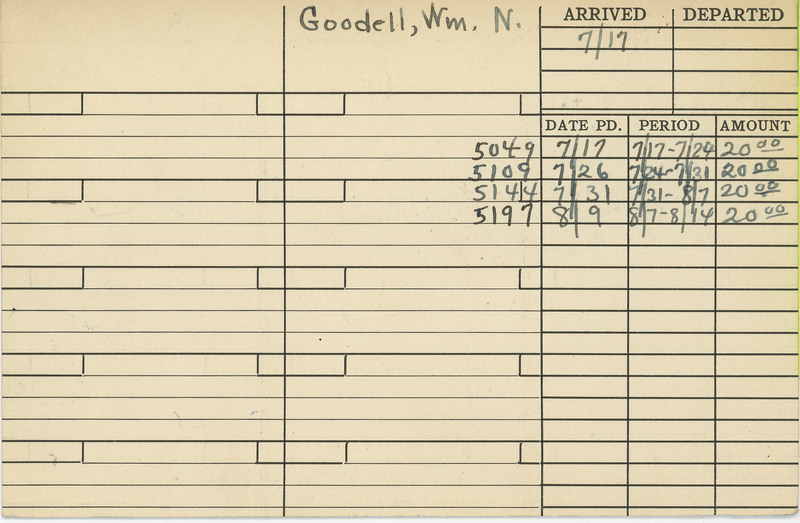 Goodell, Wm. N. ARRIVED DEPARTED
7/17
DATE PD. PERIOD AMOUNT
5049 7/17 7/17-7/24 20 00
5109 7/26 7/24-7/31 20 00
5144 7/31 7/31-8/7 20 00
5197 8/9 8/7-8/14 20 00